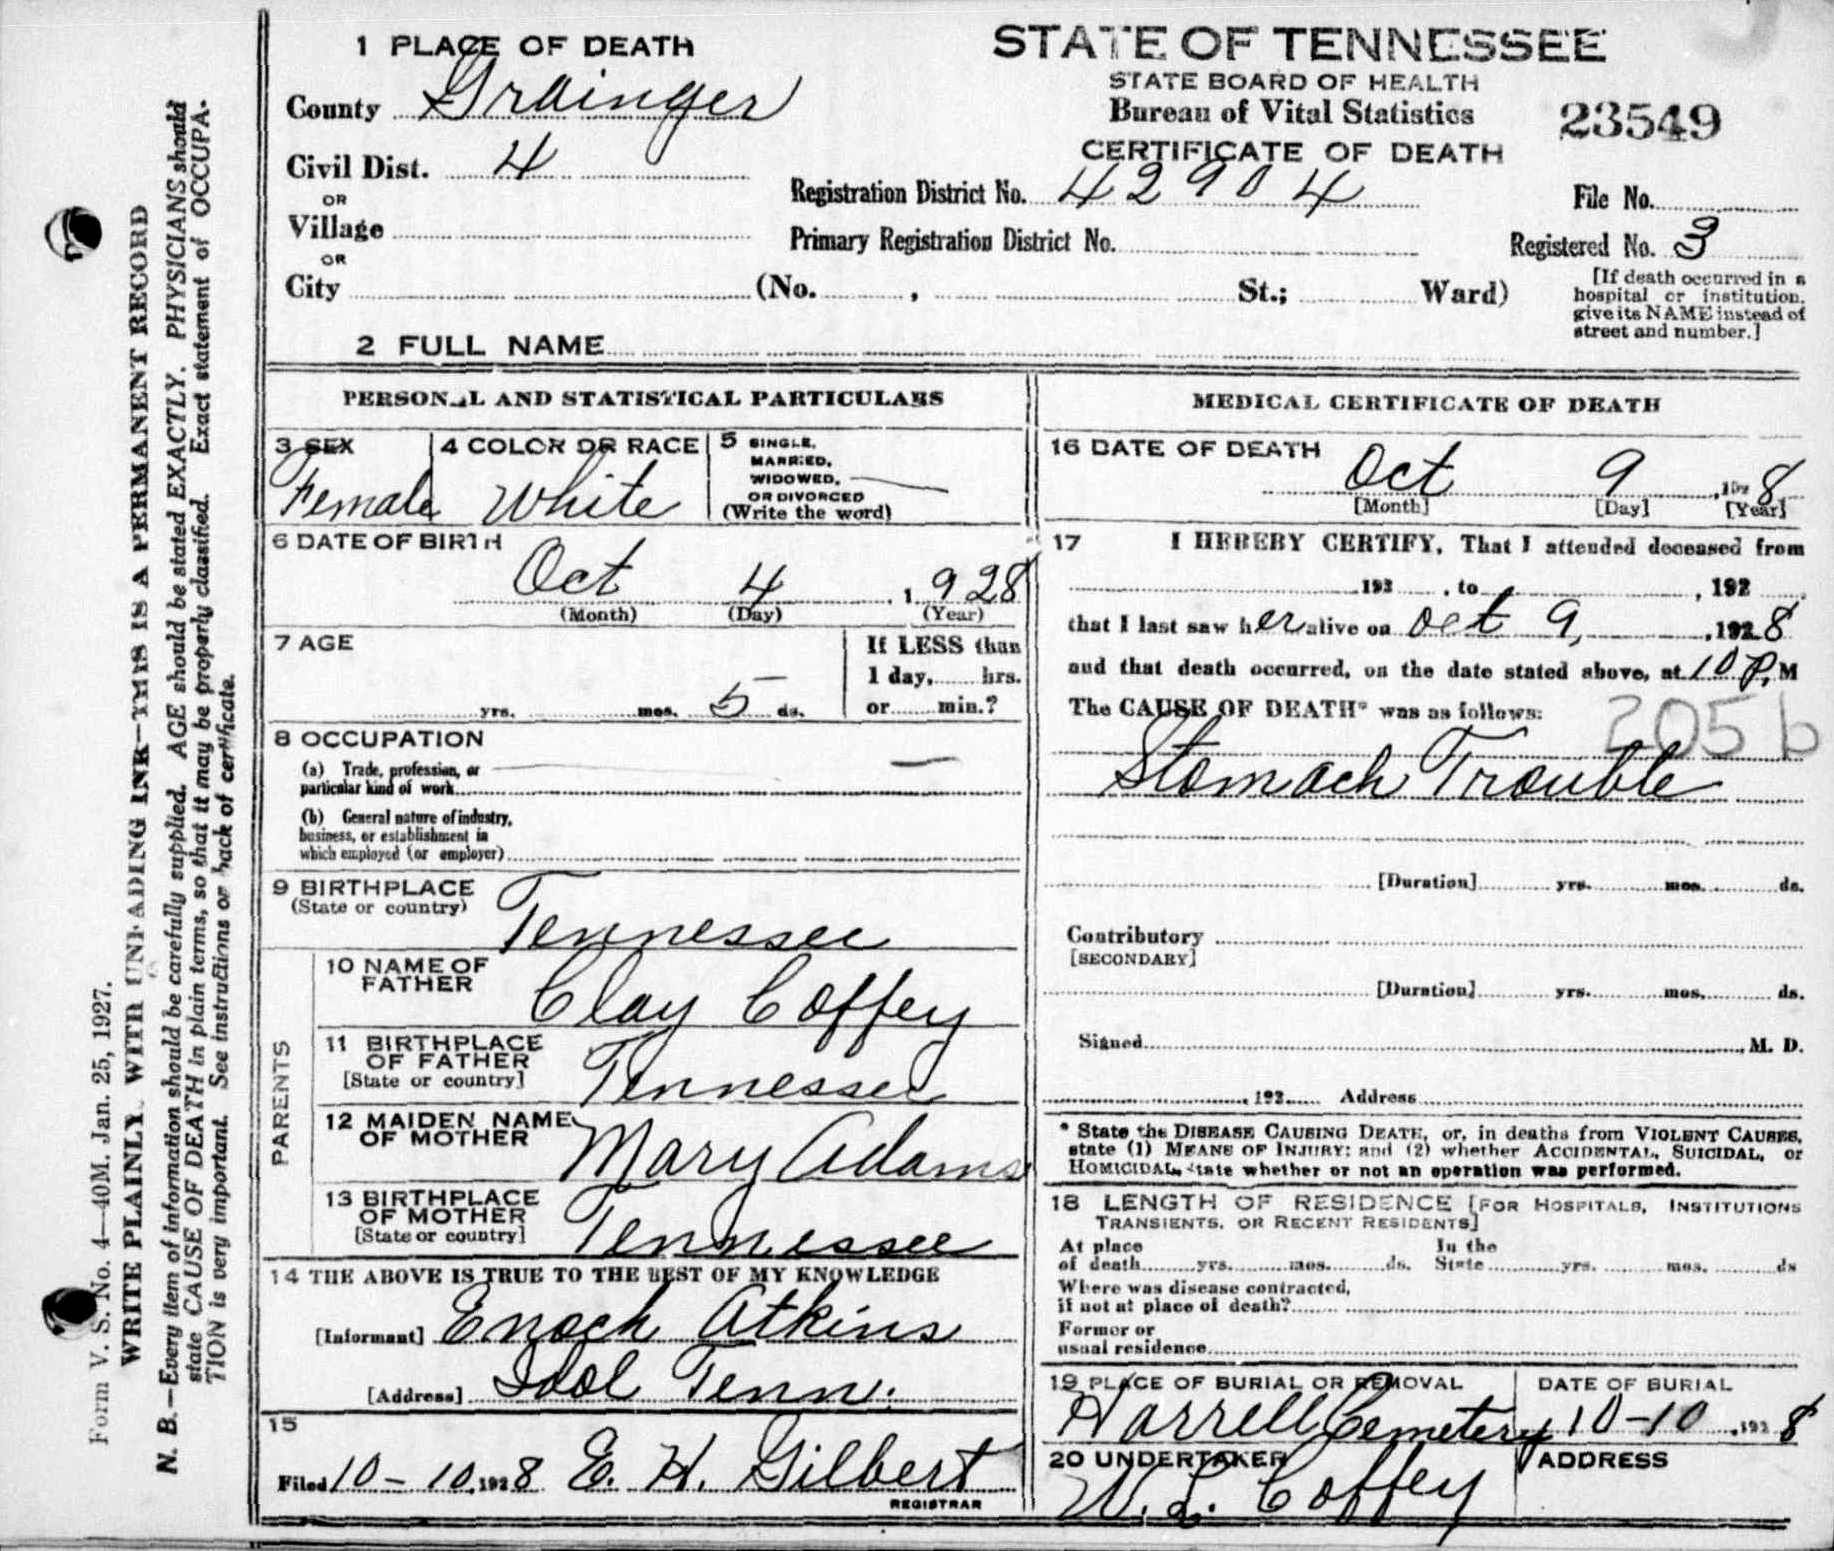 1 PLACE OF DEATH
County Grainger
Civil Dist. 4
OR
Village
OR
City (No. , St.; Ward)
STATE OF TENNESSEE
STATE BOARD OF HEALTH
Bureau of Vital Statistics
CERTIFICATE OF DEATH
23549
Registration District No. 42904
File No.
Primary Registration District No.
Registered No. 3
[If death occurred in a
hospital or institution,
give its NAME instead of
street and number.]
2 FULL NAME
PERSONAL AND STATISTICAL PARTICULARS
3 SEX
Female
4 COLOR OR RACE
White
5 SINGLE,
MARRIED,
WIDOWED,
OR DIVORCED
(Write the word)
6 DATE OF BIRTH
Oct 4, 1928
(Month) (Day) (Year)
7 AGE
yrs. mos. 5 ds.
If LESS than
1 day, hrs.
or min.?
8 OCCUPATION
(a) Trade, profession, or
particular kind of work
(b) General nature of industry,
business, or establishment in
which employed (or employer)
9 BIRTHPLACE
(State or country)
Tennessee
PARENTS
10 NAME OF
FATHER
Clay Coffey
11 BIRTHPLACE
OF FATHER
[State or country]
Tennessee
12 MAIDEN NAME
OF MOTHER
Mary Adams
13 BIRTHPLACE
OF MOTHER
[State or country]
Tennessee
14 THE ABOVE IS TRUE TO THE BEST OF MY KNOWLEDGE
[Informant] Enoch Atkins
[Address] Idol Tenn.
15
Filed 10-10, 1928 E. H. Gilbert
REGISTRAR
MEDICAL CERTIFICATE OF DEATH
16 DATE OF DEATH
Oct 9, 1928
[Month] [Day] [Year]
17 I HEREBY CERTIFY, That I attended deceased from
, 192 , to , 192
that I last saw her alive on Oct 9, , 1928
and that death occurred, on the date stated above, at 10 P. M
The CAUSE OF DEATH* was as follows:
205b
Stomach Trouble
[Duration] yrs. mos. ds.
Contributory
[SECONDARY]
[Duration] yrs. mos. ds.
Signed , M. D.
, 192 Address
* State the DISEASE CAUSING DEATH, or, in deaths from VIOLENT CAUSES,
state (1) MEANS OF INJURY; and (2) whether ACCIDENTAL, SUICIDAL, or
HOMICIDAL, state whether or not an operation was performed.
18 LENGTH OF RESIDENCE [FOR HOSPITALS, INSTITUTIONS
TRANSIENTS, OR RECENT RESIDENTS]
At place
of death yrs. mos. ds.
In the
State yrs. mos. ds
Where was disease contracted,
if not at place of death?
Former or
usual residence
19 PLACE OF BURIAL OR REMOVAL
Harrell Cemetery
DATE OF BURIAL
10-10, 1928
20 UNDERTAKER
W. L. Coffey
ADDRESS
Form V. S. No. 4—40M. Jan. 25, 1927.
WRITE PLAINLY, WITH UNFADING INK—THIS IS A PERMANENT RECORD
N. B.—Every item of information should be carefully supplied. AGE should be stated EXACTLY. PHYSICIANS should
state CAUSE OF DEATH in plain terms, so that it may be properly classified. Exact statement of OCCUPA-
TION is very important. See instructions on back of certificate.